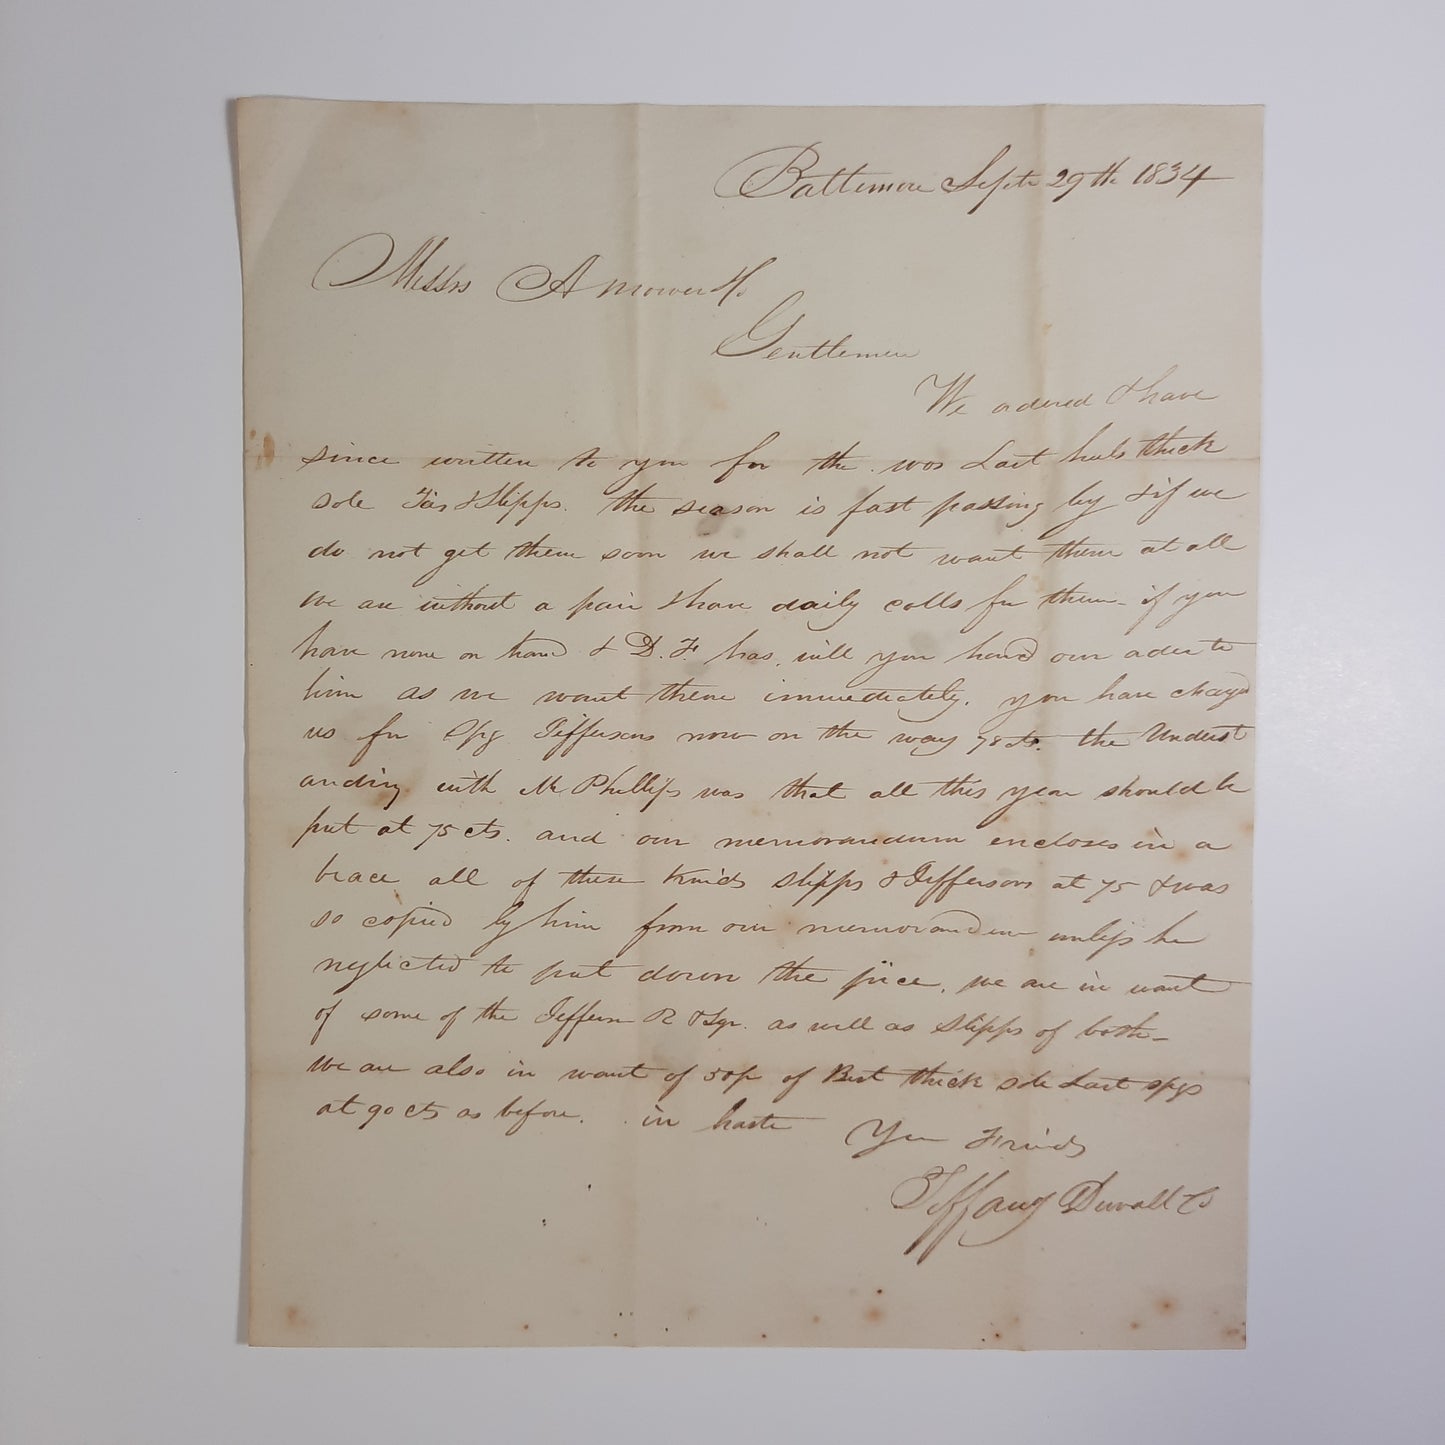 Baltimore Septr 29th 1834
Messrs A Mower & Co
Gentlemen
We ordered & have
since written to you for the wos Last heels thick
sole Ties & Slipps. the season is fast passing by & if we
do not get them soon we shall not want them at all
we are without a pair & have daily calls for them - if you
have none on hand & D. F. has, will you hand our order to
him as we want them immediately. you have charged
us for Jeffersons now on the way 78 cts. the Underst
anding with Mr Phillips was that all this year should be
put at 75 cts. and our memorandum encloses in a
brace all of these kinds slipps & Jeffersons at 75 & was
so copied by him from our memorandum unless he
neglected to put down the price. we are in want
of some of the Jefferson R & as well as Slipps of both -
we are also in want of 50 p of Best thick sole Last
at 90 cts as before. in haste
Your Friends
Tiffany Duvall & Co